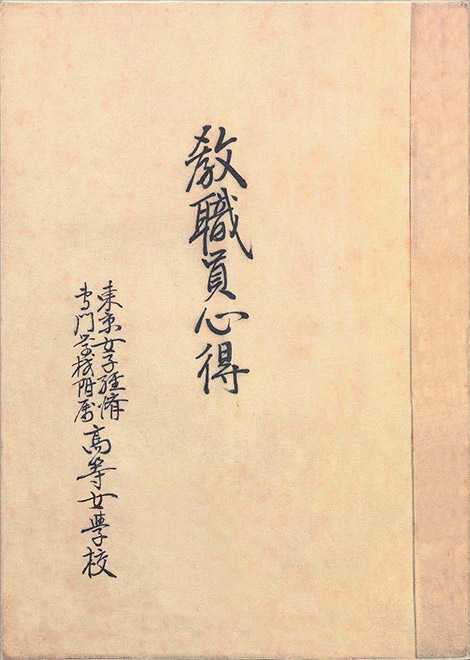 教職員心得
東京女子經濟
専門学校附属
高等女學校